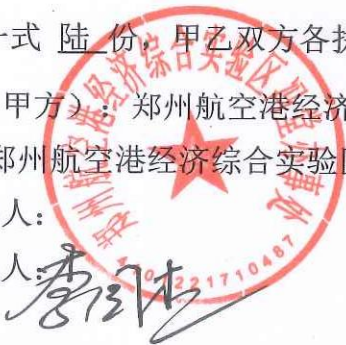 一式 陆 份，甲乙双方各执
甲方）：郑州航空港经济
郑州航空港经济综合实验区
人：
人：
郑州航空港经济综合实验区
办事处
221710487